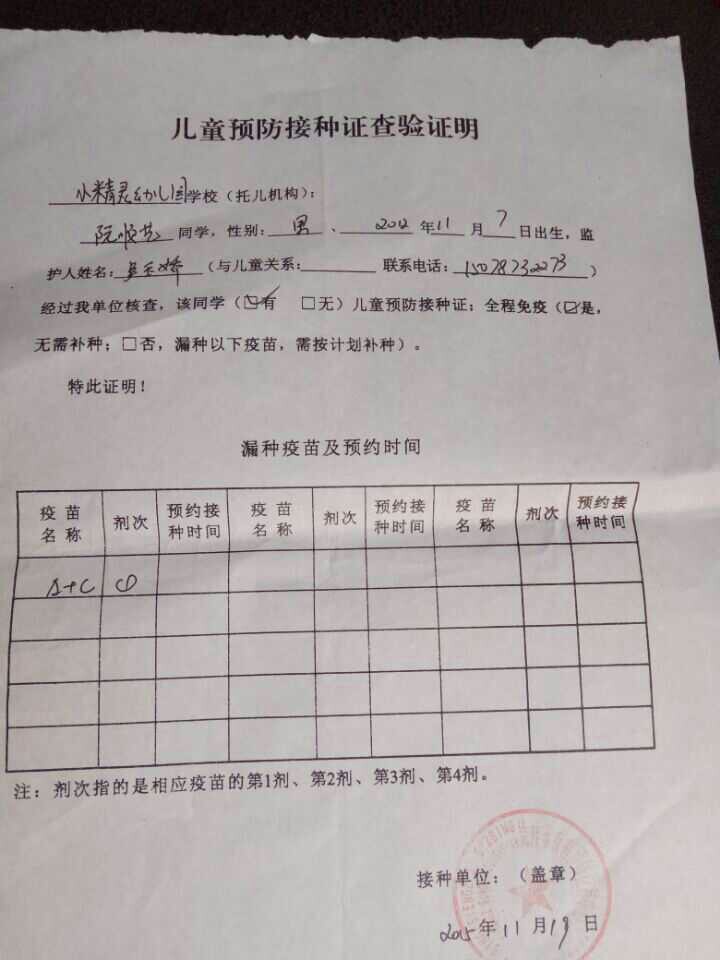 儿童预防接种证查验证明
小精灵幼儿园学校（托儿机构）：
阮顺艺 同学，性别：男、2012年11月7日出生，监
护人姓名：（与儿童关系：　　联系电话：15078732273）
经过我单位核查，该同学（☑有 □无）儿童预防接种证；全程免疫（☑是，
无需补种；□否，漏种以下疫苗，需按计划补种）。
特此证明！
漏种疫苗及预约时间
疫苗名称 剂次 预约接种时间 疫苗名称 剂次 预约接种时间 疫苗名称 剂次 预约接种时间
A+C
注：剂次指的是相应疫苗的第1剂、第2剂、第3剂、第4剂。
接种单位：（盖章）
2015年11月19日